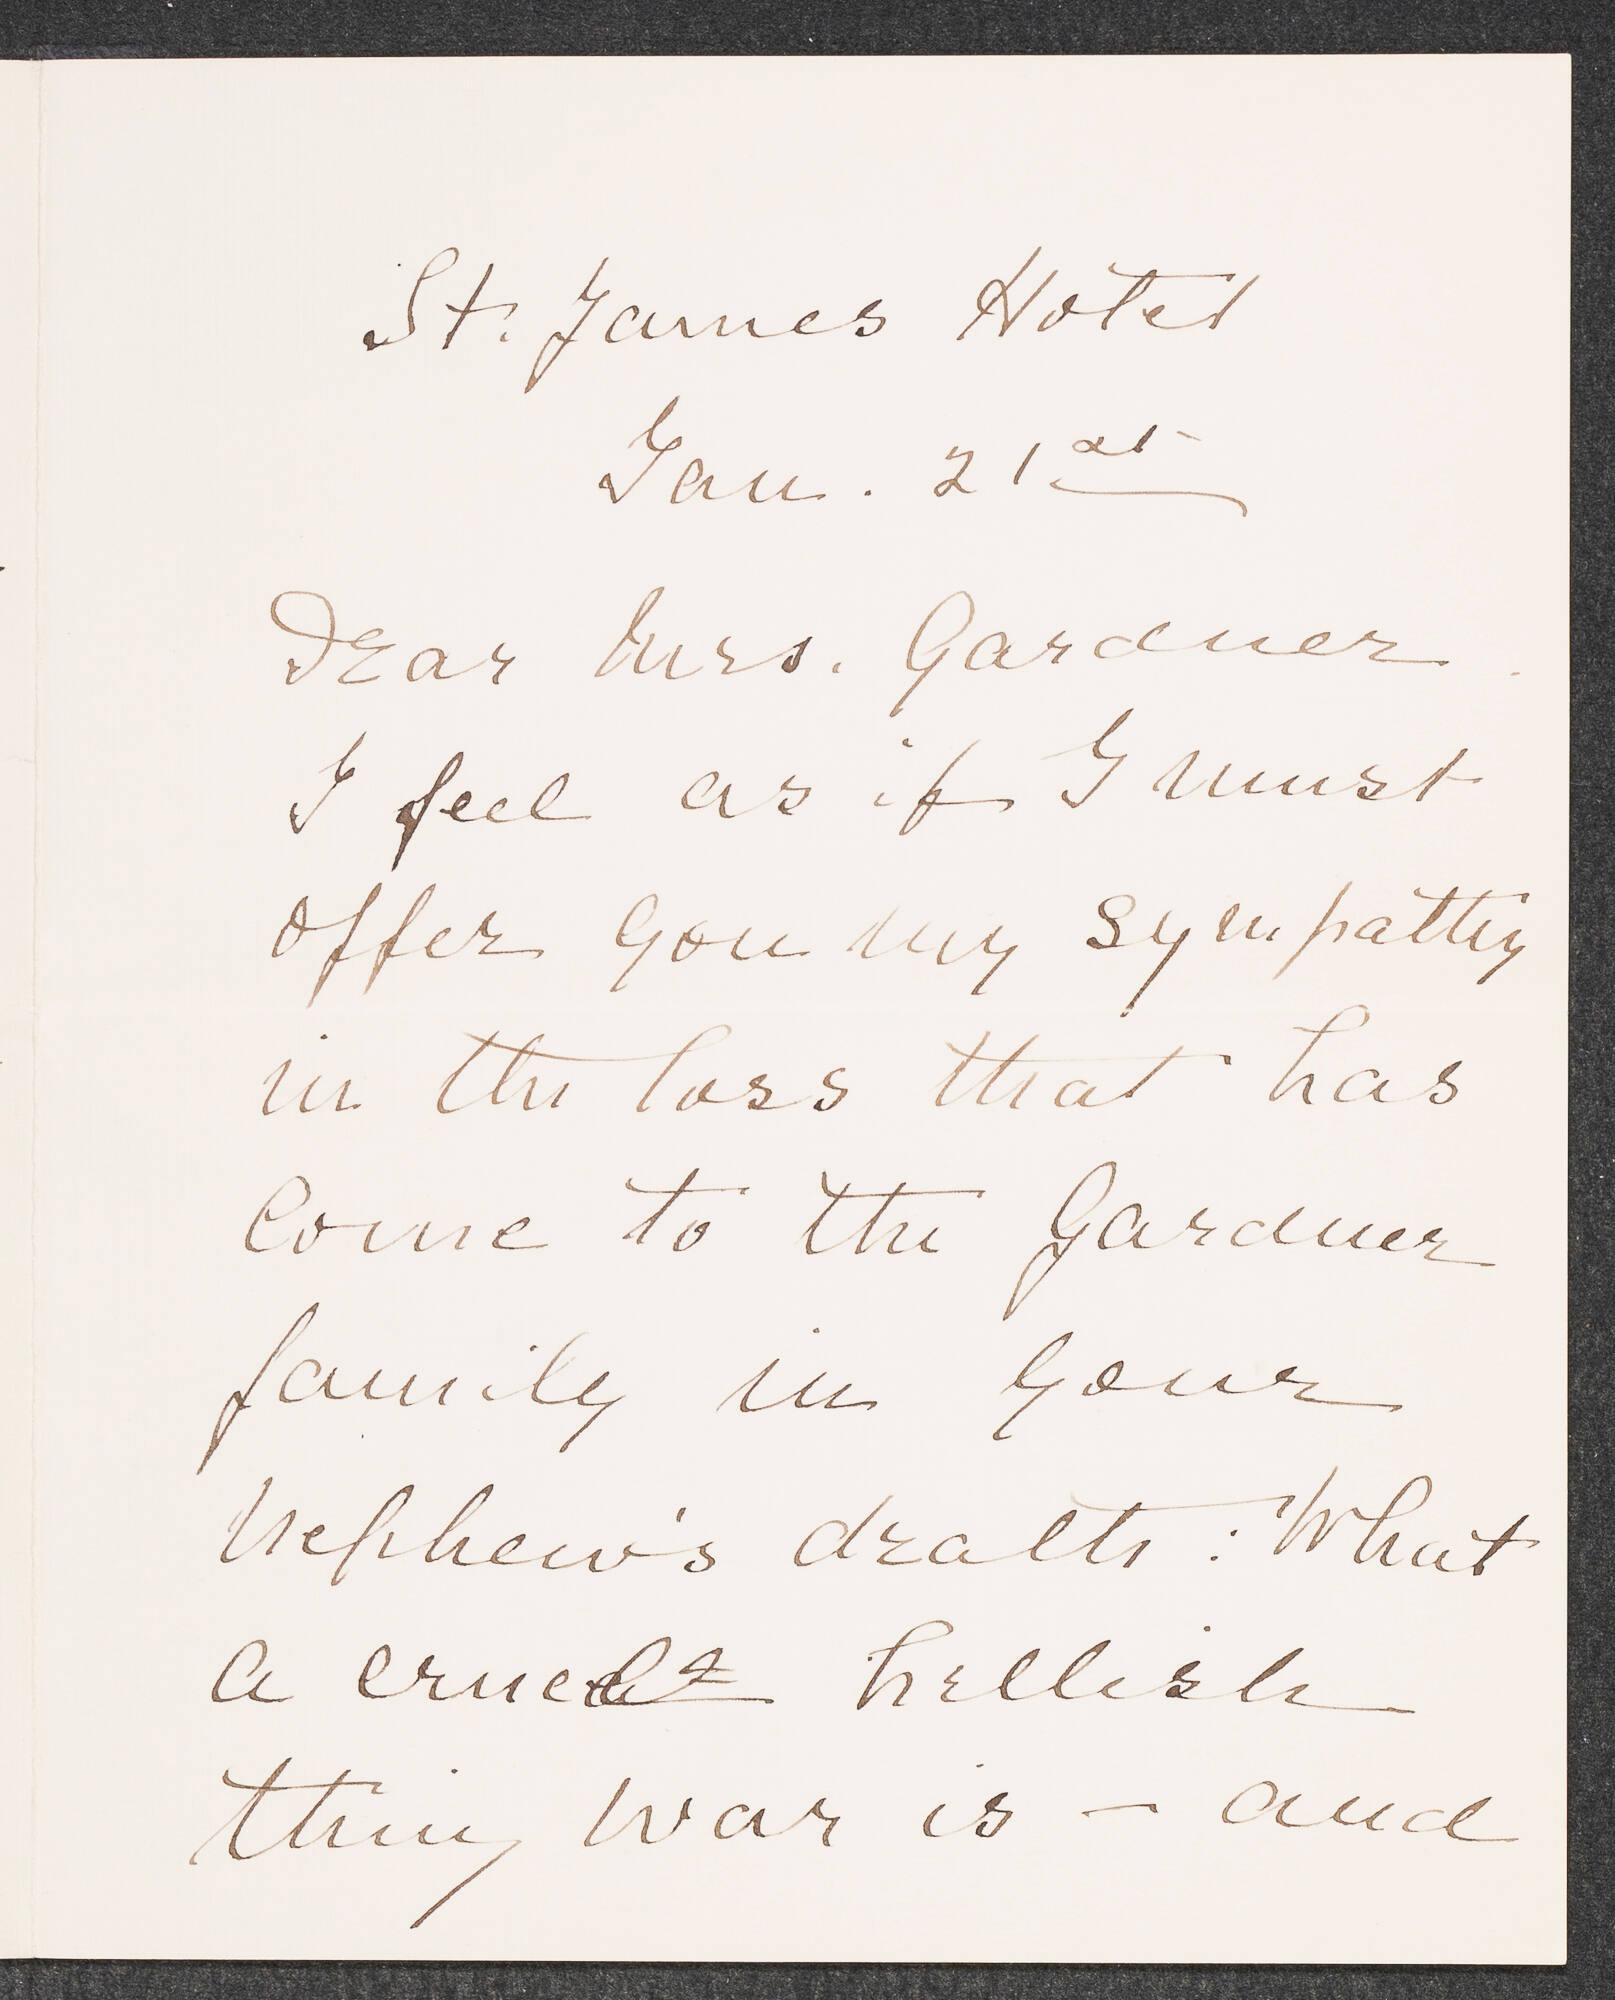 St. James Hotel
Jan. 21st
Dear Mrs. Gardner.
I feel as if I must
offer you my sympathy
in the loss that has
come to the Gardner
family in your
nephew's death: What
a cruel hellish
thing war is — and